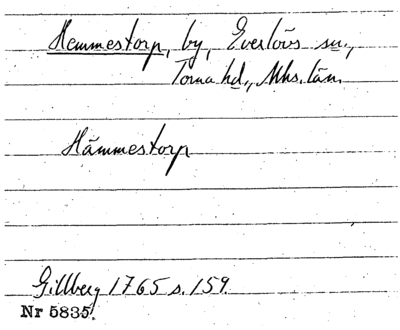 Hemmestorp, by, Everlövs sn.,
Torna hd., Mhs. län.
Hämmestorp
Gillberg 1765 s. 159.
Nr 5835.